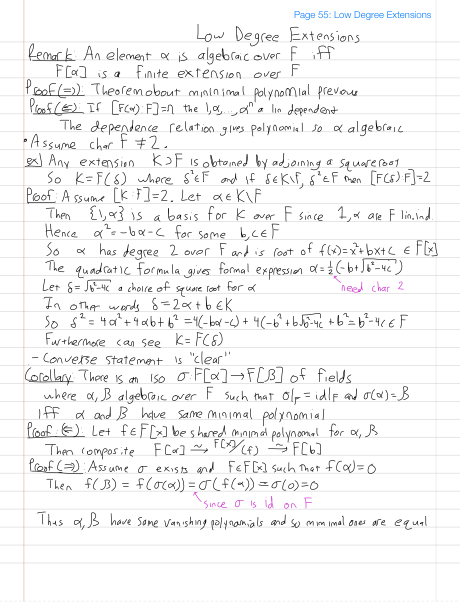 Page 55: Low Degree Extensions
Low Degree Extensions
Remark: An element α is algebraic over F iff
F[α] is a finite extension over F
Proof(⇒): Theorem about mininmal polynomial previous
Proof(⇐): If [F(α):F]=n the 1,α,...,αⁿ a lin dependent
The dependence relation gives polynomial so α algebraic
• Assume char F ≠ 2.
ex) Any extension K⊃F is obtained by adjoining a square root
So K=F(δ) where δ²∈F and if δ∈K\F, δ²∈F then [F(δ):F]=2
Proof: Assume [K:F]=2. Let α∈K\F
Then {1,α} is a basis for K over F since 1,α are F lin.ind.
Hence α²=-bα-c for some b,c∈F
So α has degree 2 over F and is root of f(x)=x²+bx+c ∈ F[x]
The quadratic formula gives formal expression α=½(-b+√b²-4c)
Let δ=√b²-4c a choice of square root for α
need char 2
In other words δ=2α+b∈K
So δ²=4α²+4αb+b²=4(-bα-c)+4(-b²+b√b²-4c+b²=b²-4c∈F
Furthermore can see K=F(δ)
- Converse statement is "clear"
Corollary: There is an iso σ:F[α]→F[β] of fields
where α,β algebraic over F such that σ|F=id|F and σ(α)=β
iff α and β have same minimal polynomial
Proof(⇐): Let f∈F[x] be shared minimal polynomal for α,β
Then composite F[α] ⥲ F[x]/(f) ⥲ F[b]
Proof(⇒): Assume σ exists and F∈F[x] such that f(α)=0
Then f(β)=f(σ(α))=σ(f(α))=σ(0)=0
since σ is id on F
Thus α,β have same vanishing polynomials and so minimal ones are equal